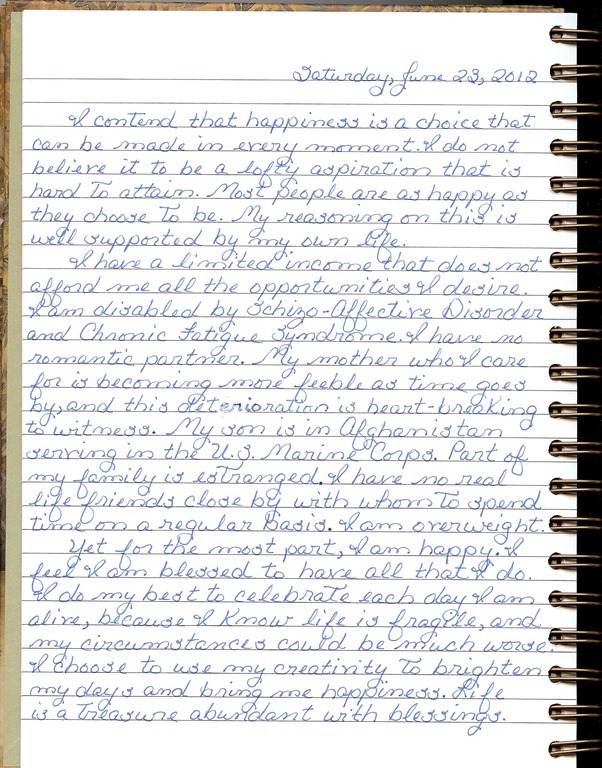 Saturday, June 23, 2012
I contend that happiness is a choice that
can be made in every moment. I do not
believe it to be a lofty aspiration that is
hard to attain. Most people are as happy as
they choose to be. My reasoning on this is
well supported by my own life.
I have a limited income that does not
afford me all the opportunities I desire.
I am disabled by Schizo-Affective Disorder
and Chronic Fatigue Syndrome. I have no
romantic partner. My mother who I care
for is becoming more feeble as time goes
by, and this deterioration is heart-breaking
to witness. My son is in Afghanistan
serving in the U.S. Marine Corps. Part of
my family is estranged. I have no real
life friends close by with whom to spend
time on a regular basis. I am overweight.
Yet for the most part, I am happy. I
feel I am blessed to have all that I do.
I do my best to celebrate each day I am
alive, because I know life is fragile, and
my circumstances could be much worse.
I choose to use my creativity to brighten
my days and bring me happiness. Life
is a treasure abundant with blessings.